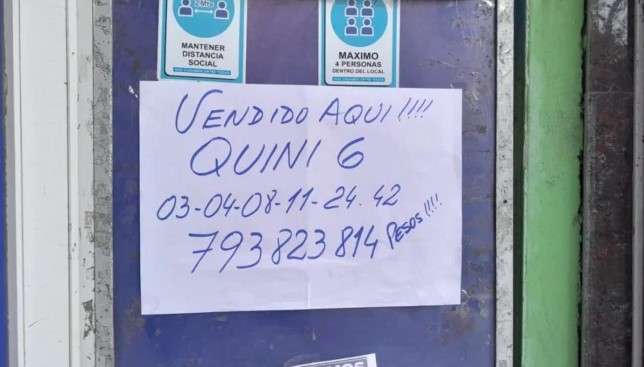 2 Mts
MANTENER
DISTANCIA
SOCIAL
MÁXIMO
4 PERSONAS
DENTRO DEL LOCAL
VENDIDO AQUI!!!!
QUINI 6
03-04-08-11-24.42
793823814 PESOS!!!!